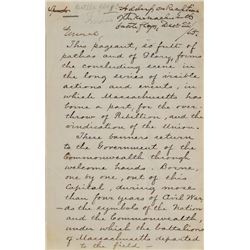 Address on Reception
of the
Battle Flags, Dec. 22
65.
General
This pageant, so full of
pathos and of Glory, forms
the concluding scene in
the long series of visible
actions and events, in
which Massachusetts has
borne a part, for the over-
throw of Rebellion, and the
vindication of the Union.
These banners returned
to the Government of the
Commonwealth through
welcome hands. Borne,
one by one, out of this
Capitol, during more
than four years of Civil War
as the symbols of the Nation
and the Commonwealth,
under which the battalions
of Massachusetts departed
to the field